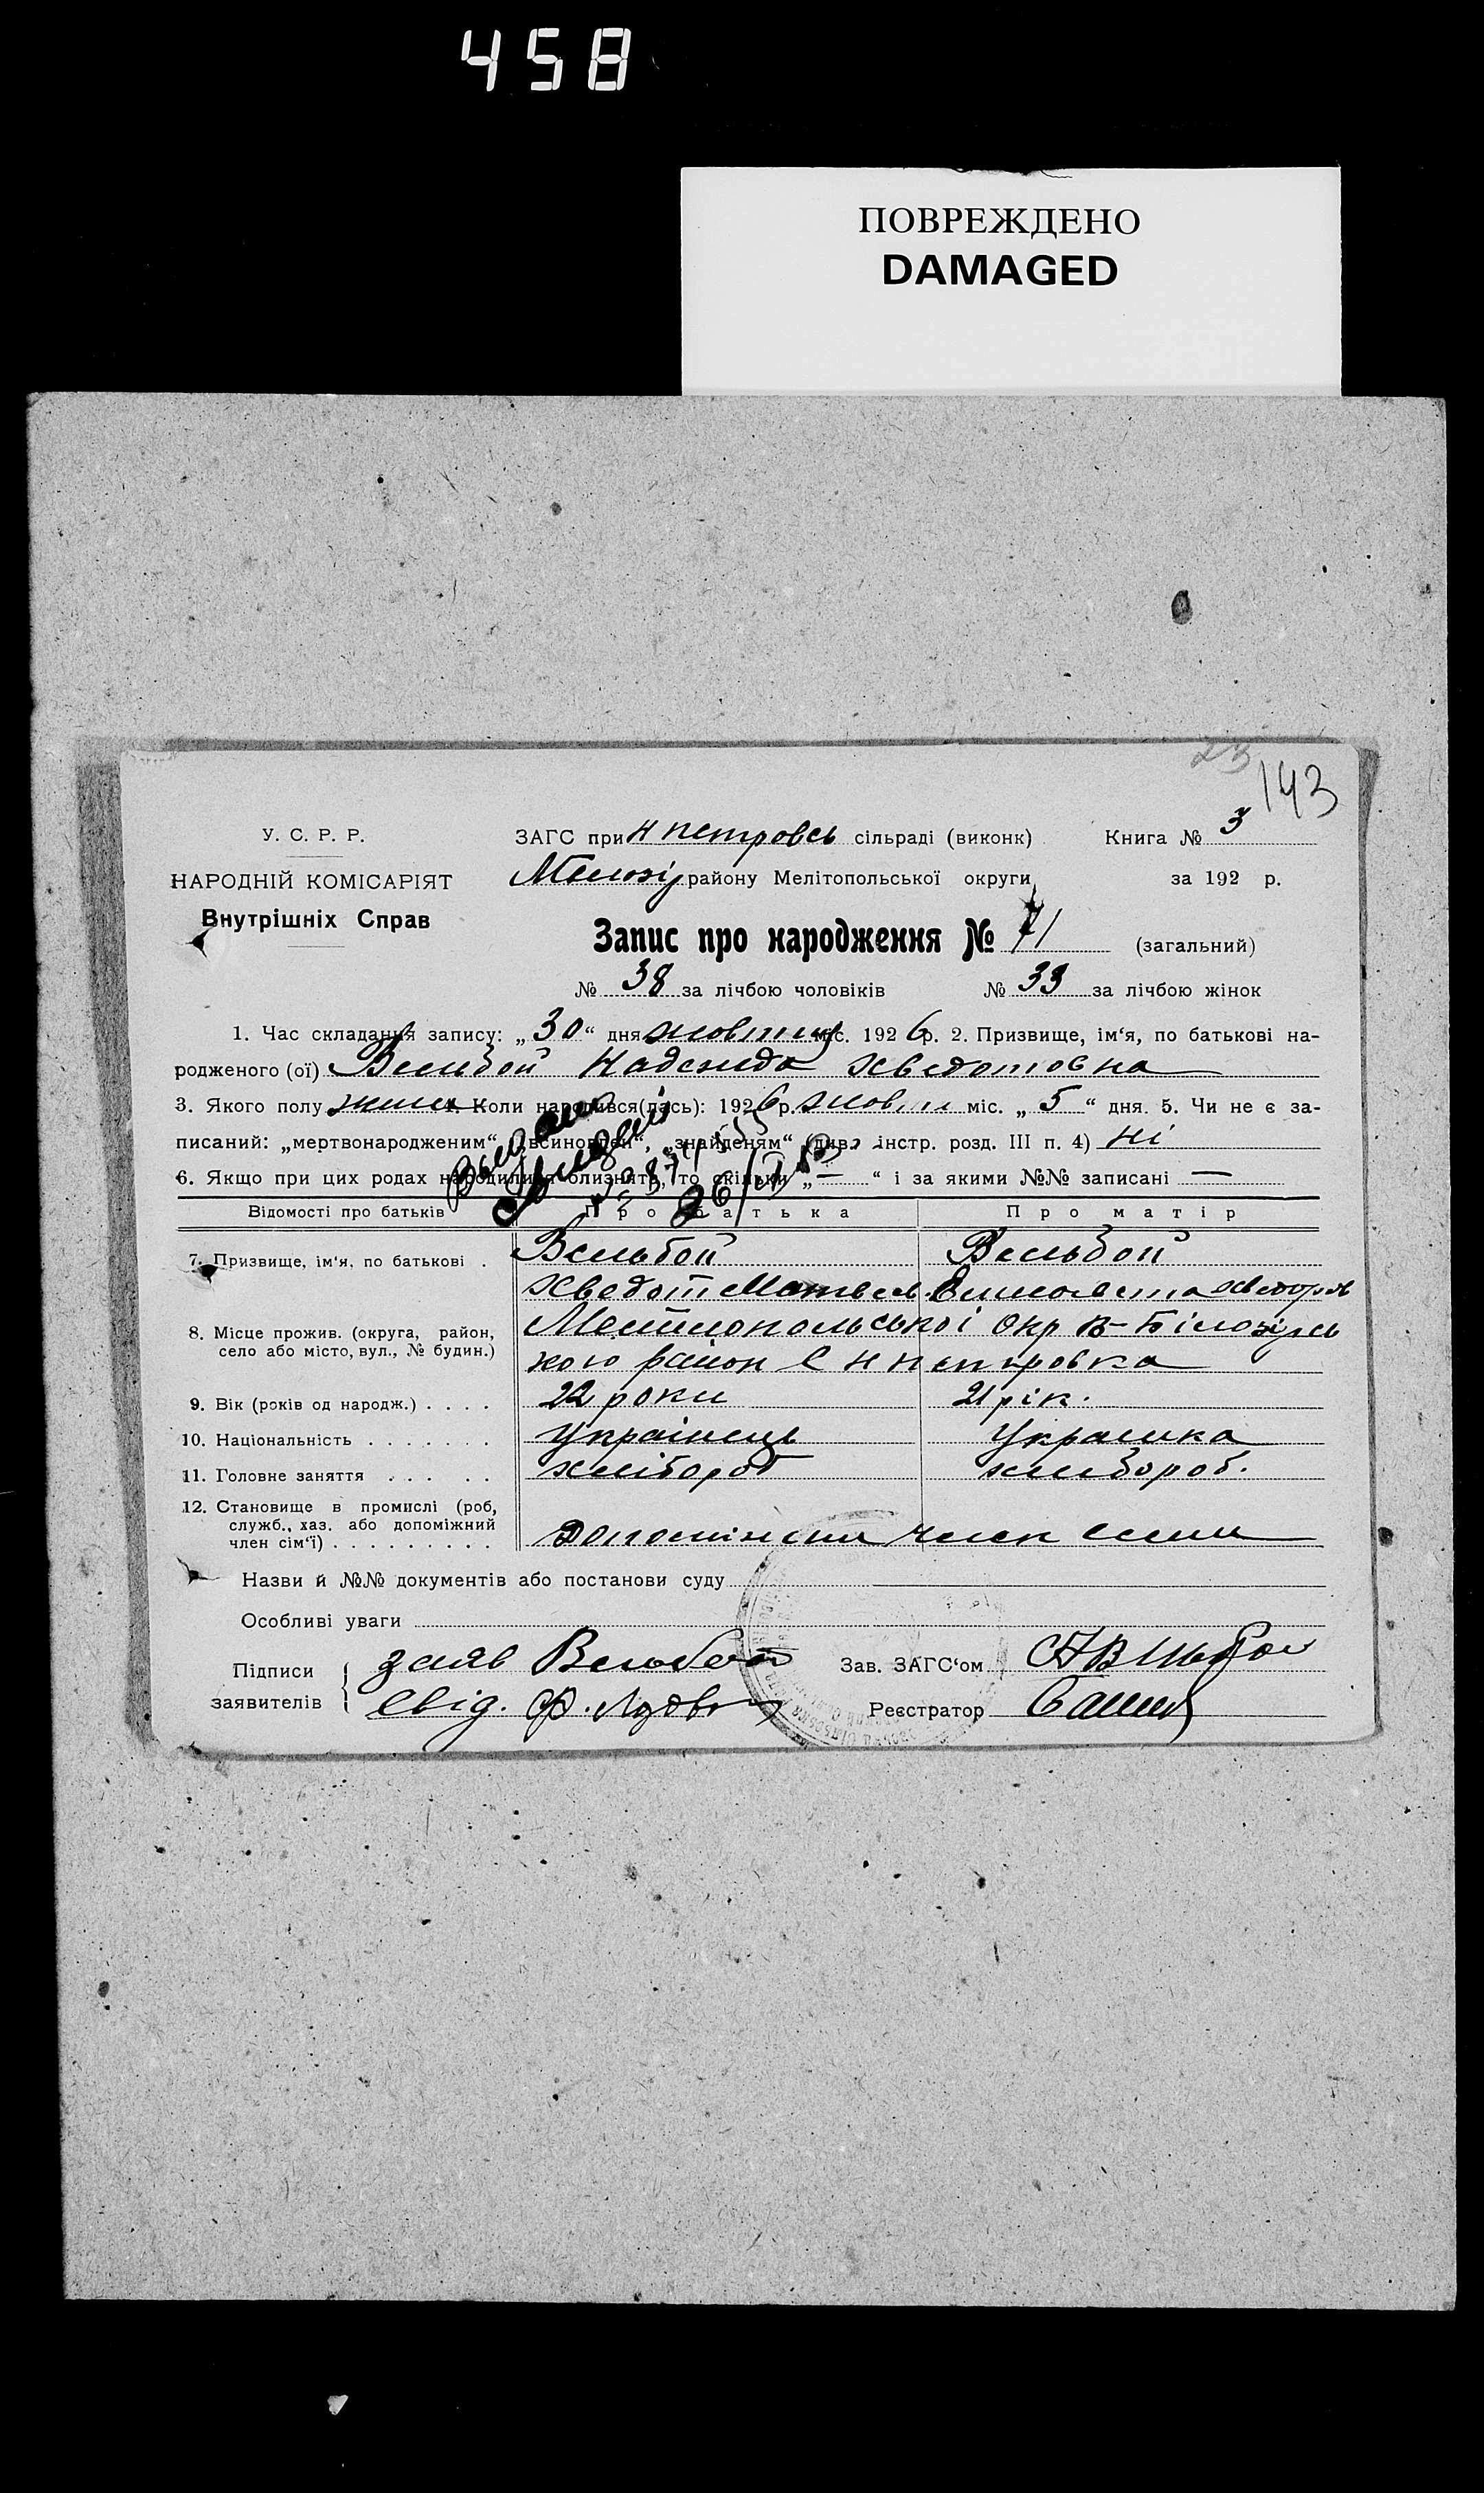 458
ПОВРЕЖДЕНО
DAMAGED
23
143
У. С. Р. Р.
НАРОДНІЙ КОМІСАРІЯТ
Внутрішніх Справ
ЗАГС при Н петровсь сільраді (виконк)
Книга № 3
району Мелітопольської округи
за 192 р.
Запис про народження № 71 (загальний)
№ 38 за лічбою чоловіків № 33 за лічбою жінок
1. Час складання запису: „30“ дня жовтня міс. 1926 р. 2. Призвище, ім‘я, по батькові на-
родженого (ої) Вельбой Надежда Хведотовна
3. Якого полу жин 4. Коли народився(лась): 1926 р. жовтн міс. „5“ дня. 5. Чи не є за-
писаний: „мертвонародженим“, „всиновлен“, „знайденям“ (див. інстр. розд. III п. 4) ні
6. Якщо при цих родах народилися близнята, то скільки „—“ і за якими №№ записані —
Відомості про батьків
Про батька
Про матір
7. Призвище, ім‘я, по батькові .
Вельбой
Вельбой
Хведот Матвеев.
Елисавета
8. Місце прожив. (округа, район,
село або місто, вул., № будин.)
Мелітопольської Окр В-Білозірсь
кого район с Н петровка
9. Вік (років од народж.) . . . .
22 роки
21 рік.
10. Національність . . . . . . .
Українець
Українка
11. Головне заняття . . . . .
хлібороб
хлибороб.
12. Становище в промислі (роб,
служб., хаз. або допоміжний
член сім‘ї) . . . . . . . . .
член
Назви й №№ документів або постанови суду
Особливі уваги
Підписи
заявителів
заяв Вельбой
Свід. Ф.
Зав. ЗАГС‘ом
Реєстратор